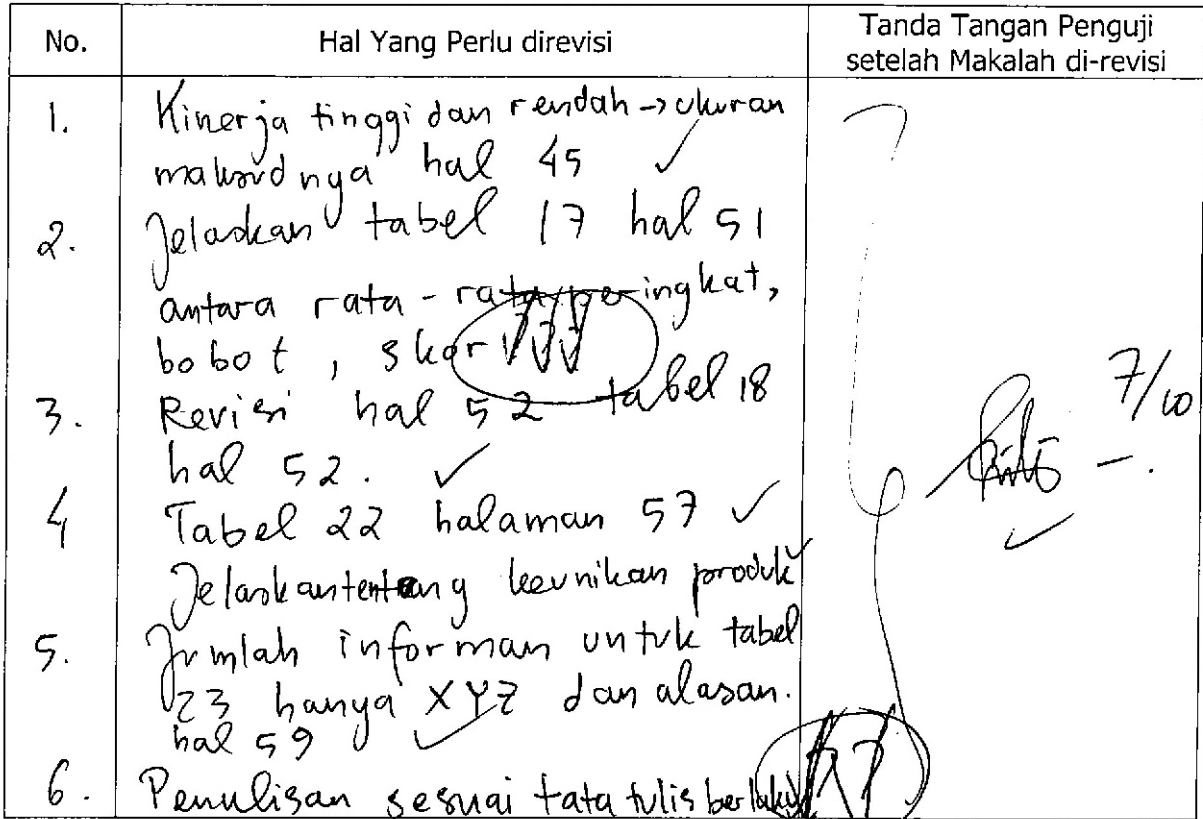 No.
Hal Yang Perlu direvisi
Tanda Tangan Penguji
setelah Makalah di-revisi
1. Kinerja tinggi dan rendah → ukuran
maksudnya hal 45 ✓
2. Jelaskan tabel 17 hal 51
antara rata-rata, peringkat,
bobot, skor
3. Revisi hal 52 tabel 18
hal 52. ✓
4 Tabel 22 halaman 57 ✓
Jelaskan tentang keunikan produk ✓
5. Jumlah informan untuk tabel
23 hanya XYZ dan alasan.
hal 59 ✓
6. Penulisan sesuai tata tulis berlaku
7/10